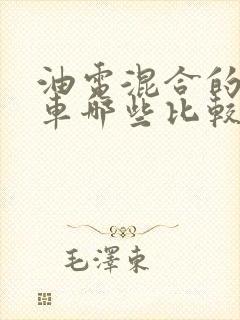 油電混合的
車哪些比較
毛澤東